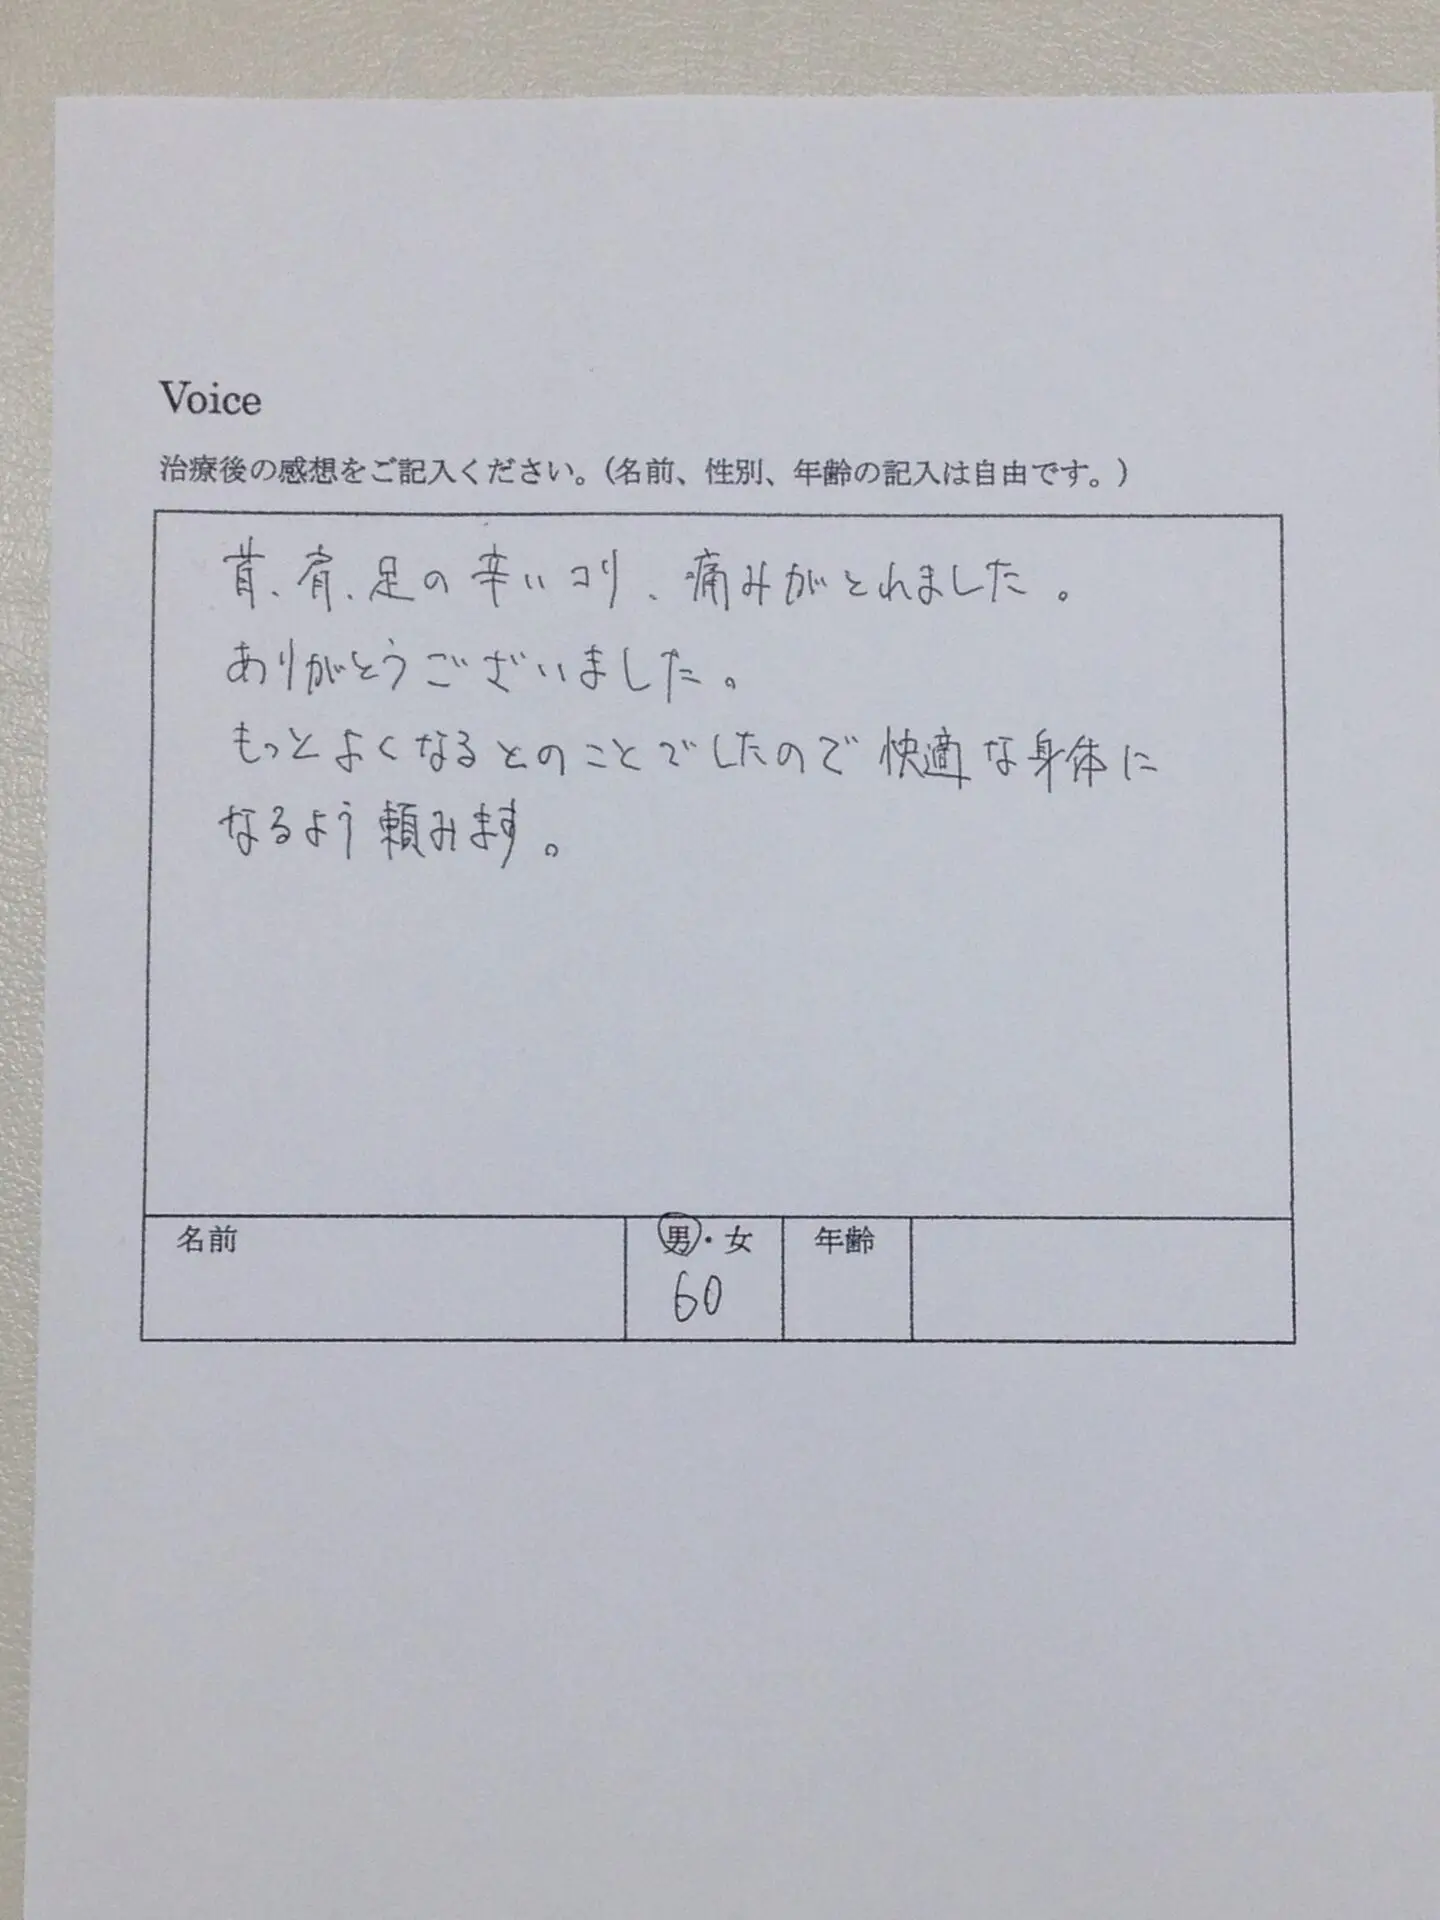 Voice
治療後の感想をご記入ください。(名前、性別、年齢の記入は自由です。)
首、肩、足の辛いコリ、痛みがとれました。
ありがとうございました。
もっとよくなるとのことでしたので快適な身体に
なるよう頼みます。
名前 男・女 年齢
60